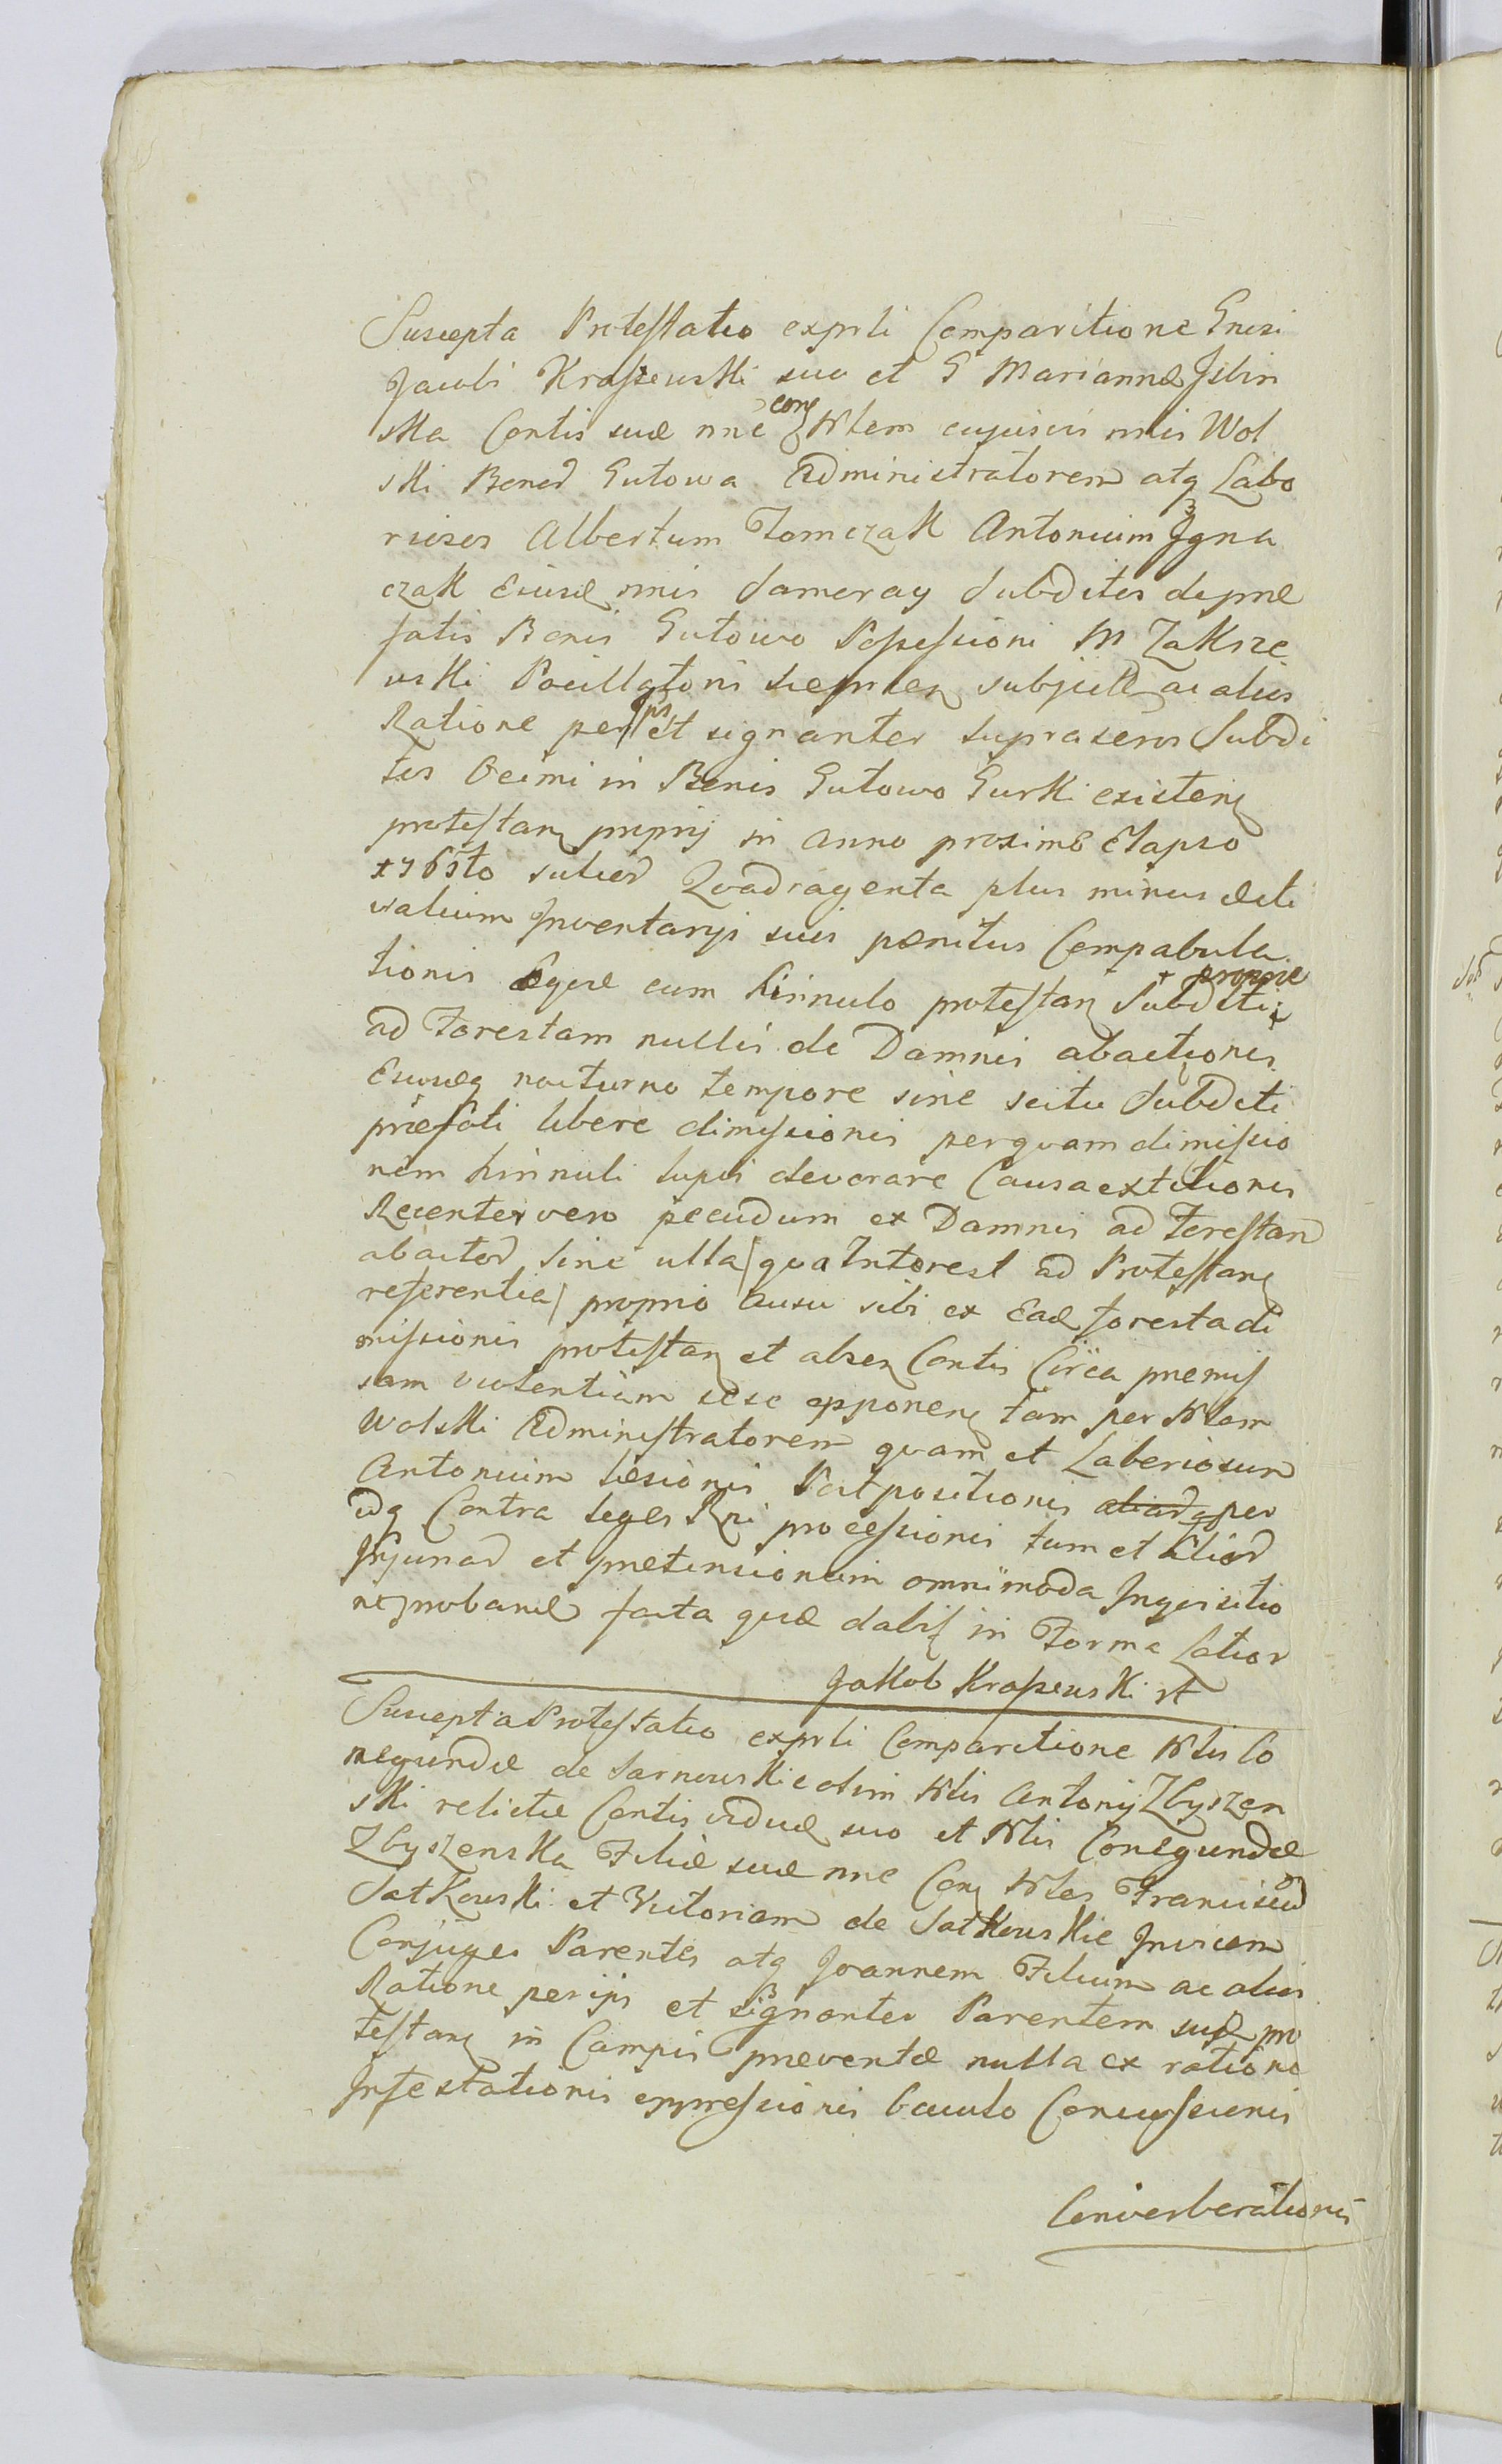 Suscepta Protestatio exprli Comparitione Gnrsi
Jacobi Kraszewski suo et G Mariannæ Jslin
ska Contis suæ nne cong Nblem cujusvis nnis Wol
ski Bonor Gutowa Administratorem atq Labo
riosos Albertum Tomczak Antonium Jgna
czak Eiusd nnis Jameray Subditos de præ
fatis Bonis Gutowo Possessioni M Zakrze
wski Pocillatoris subject ac alios
Ratione per ps et signanter supraseros Subdi
tos Geimi in Bonis Gutowo Gurki existen
protestan proprij in Anno proxime Elapso
1765to sulcor Quadragenta plus minus æsti
valium Jnventarijs suis penitus Compabula
tionis Equæ cum hinnulo protestan Subditi propriæ
ad Forestam nullis de Damnis abactionis
Eiusdeq nocturno tempore sine scitu Subditi
præfati libere dimissionis per quam dimissio
nem hinnuli lupis devorare Causa extitionis
Recenter vero pecudum ex Damnis ad forestam
abactor sine ulla / qua Interest ad Protestan
referentia / proprio Ausu sibi ex Ead foresta di
missionis protestan et absen Contis Circa premis
sam violentiam sese opponen tam per Nblem
Wolski Administratorem quam et Laboriosum
Antonium læsionis Postpositionis aliarq per
idq Contra leges Rni processionis tum et alior
Jnjuriar et pretensionum omnimoda Jnquisitio
ne proband facta quæ dabit in Forma Latior
Jakob Kraszewski
Suscepta Protestatio exprli Comparitione Nblis Co
negundæ de Sarnowskie olim Nblis Antonij Zbyszen
ski relictæ Contis viduæ suo et Nblis Conegundæ
Zbyszenska Filiæ suæ nne Con Nbles Franciscum
Satkowski et Victoriam de Satkowskie Jnvicem
Conjuges Parentes atq Joannem Filium ac alios
Ratione per ips et signanter Parentem sup pro
testan in Campis preventæ nulla ex ratione
Jnfestationis oppressionis baculo Concussionis
Converberationis